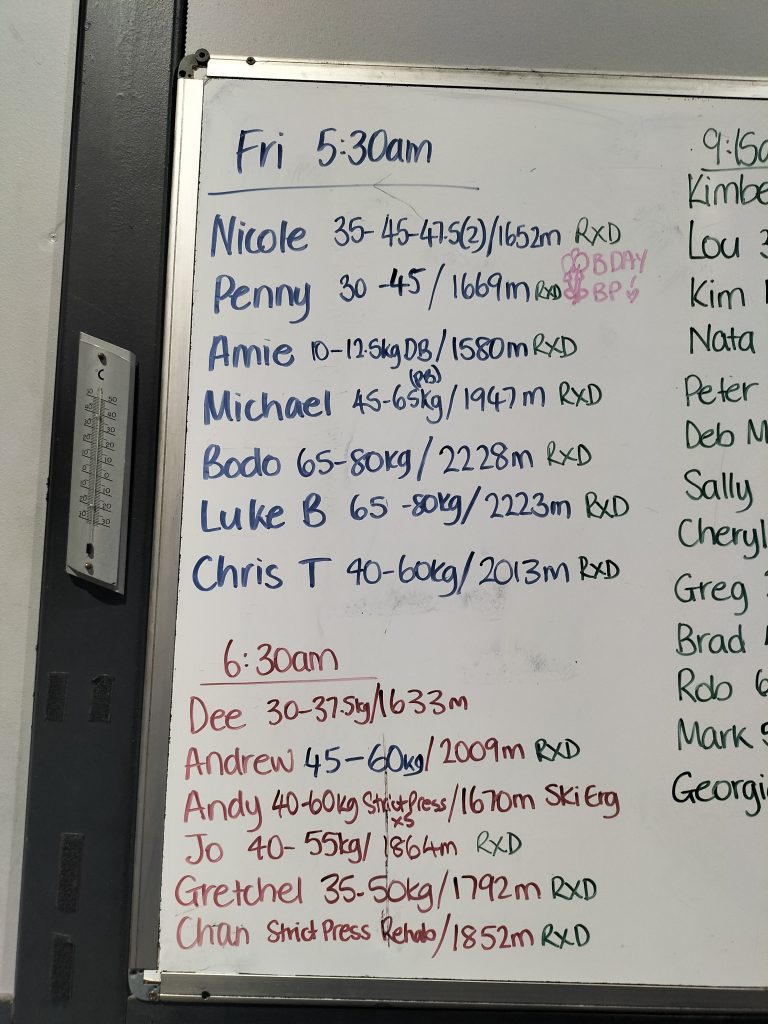 Fri 5:30am
Nicole 35-45-47.5(2)/1652m RXD
Penny 30-45/1669m RXD BDAY
BP
Amie 10-12.5kg DB/1580m RXD
(PB)
Michael 45-65kg/1947m RXD
Bodo 65-80kg/2228m RXD
Luke B 65-80kg/2223m RXD
Chris T 40-60kg/2013m RXD
6:30am
Dee 30-37.5kg/1633m
Andrew 45-60kg/2009m RXD
Andy 40-60kg Strict Press/1670m Ski Erg
x5
Jo 40-55kg/1864m RXD
Gretchel 35-50kg/1792m RXD
Chan Strict Press Rehab/1852m RXD
9:15a
Kimbe
Lou 3
Kim
Nata
Peter
Deb M
Sally
Cheryl
Greg
Brad
Rob 6
Mark 5
Georgi
°C